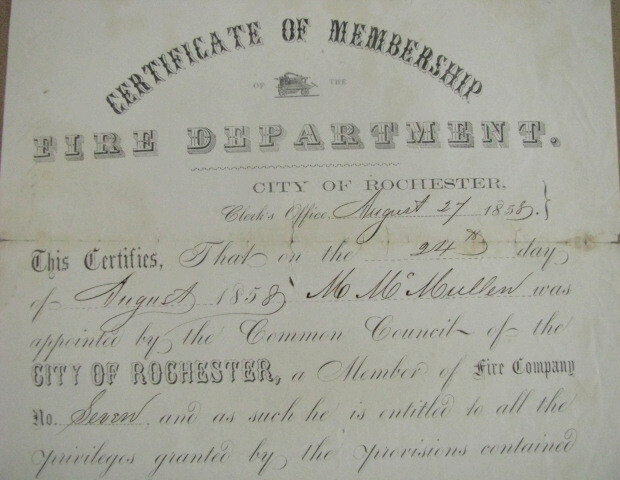 CERTIFICATE OF MEMBERSHIP
OF THE
FIRE DEPARTMENT.
CITY OF ROCHESTER,
Clerk's Office, August 27 1858.
This Certifies, That on the 24th day
of August 1858 M McMullen was
appointed by the Common Council of the
CITY OF ROCHESTER, a Member of Fire Company
No. Seven and as such he is entitled to all the
privileges granted by the provisions contained